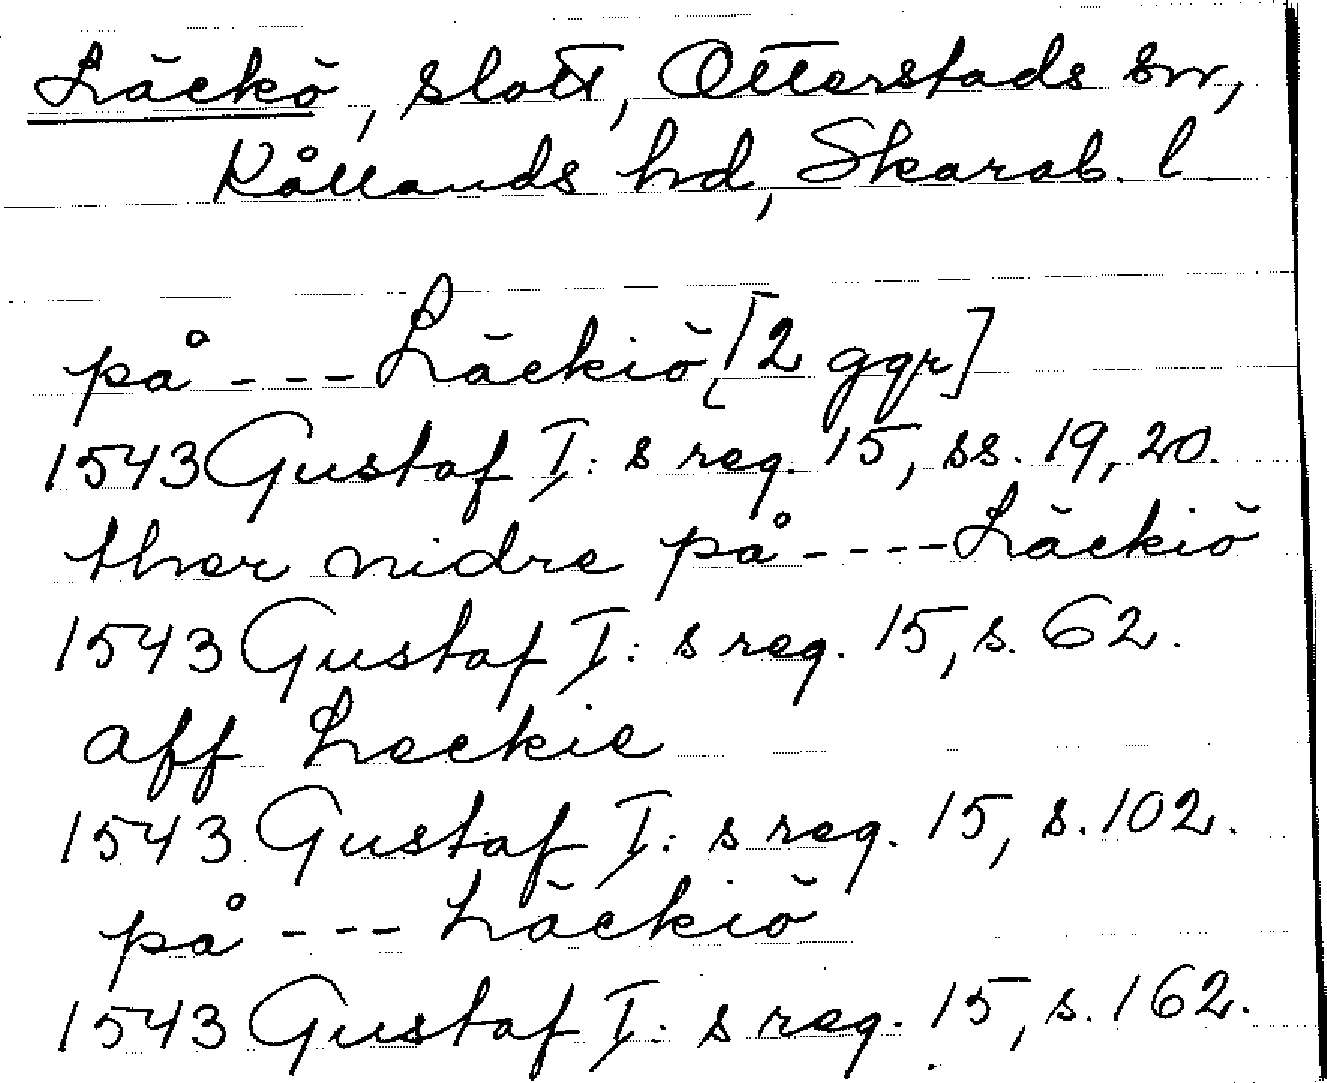 Läckö, slott, Otterstads sn,
Kållands hd, Skarab. l.
på --- Läckiö [2 ggr]
1543 Gustaf I:s reg. 15, ss. 19, 20.
ther nidre på ---- Läckiö
1543 Gustaf I:s reg. 15, s. 62.
aff Leckie
1543 Gustaf I:s reg. 15, s. 102.
på --- Läckiö
1543 Gustaf I:s reg. 15, s. 162.